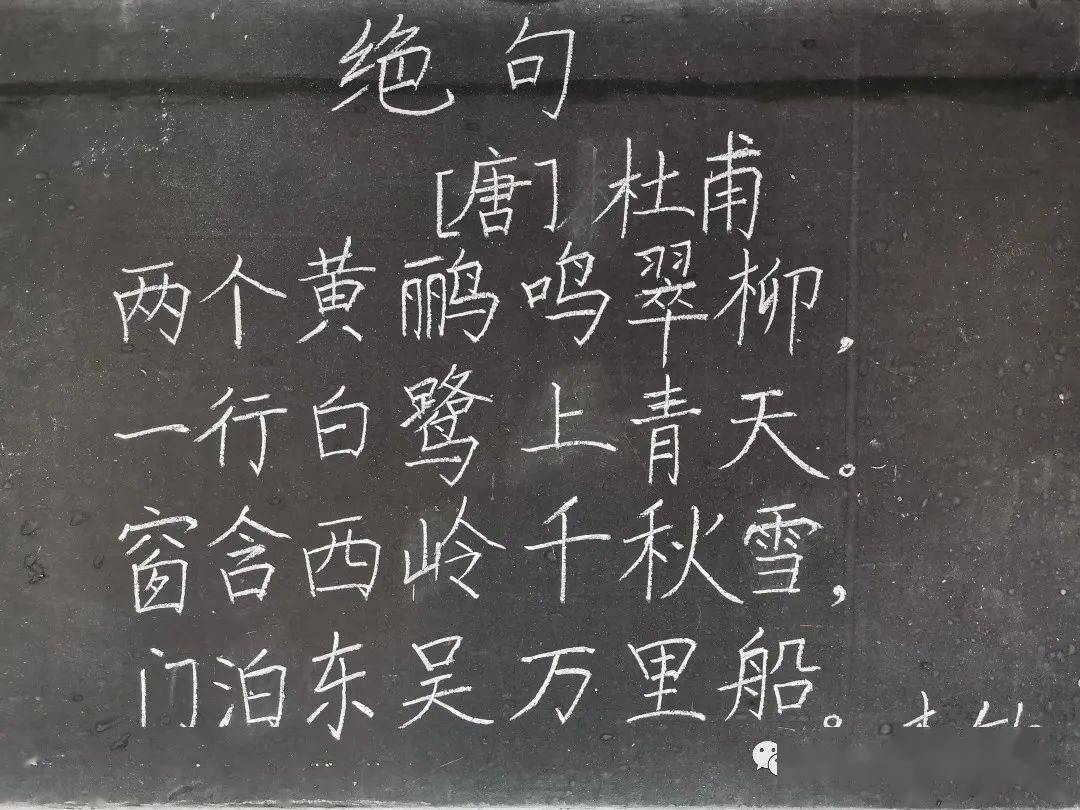 绝句
[唐]杜甫
两个黄鹂鸣翠柳,
一行白鹭上青天。
窗含西岭千秋雪,
门泊东吴万里船。